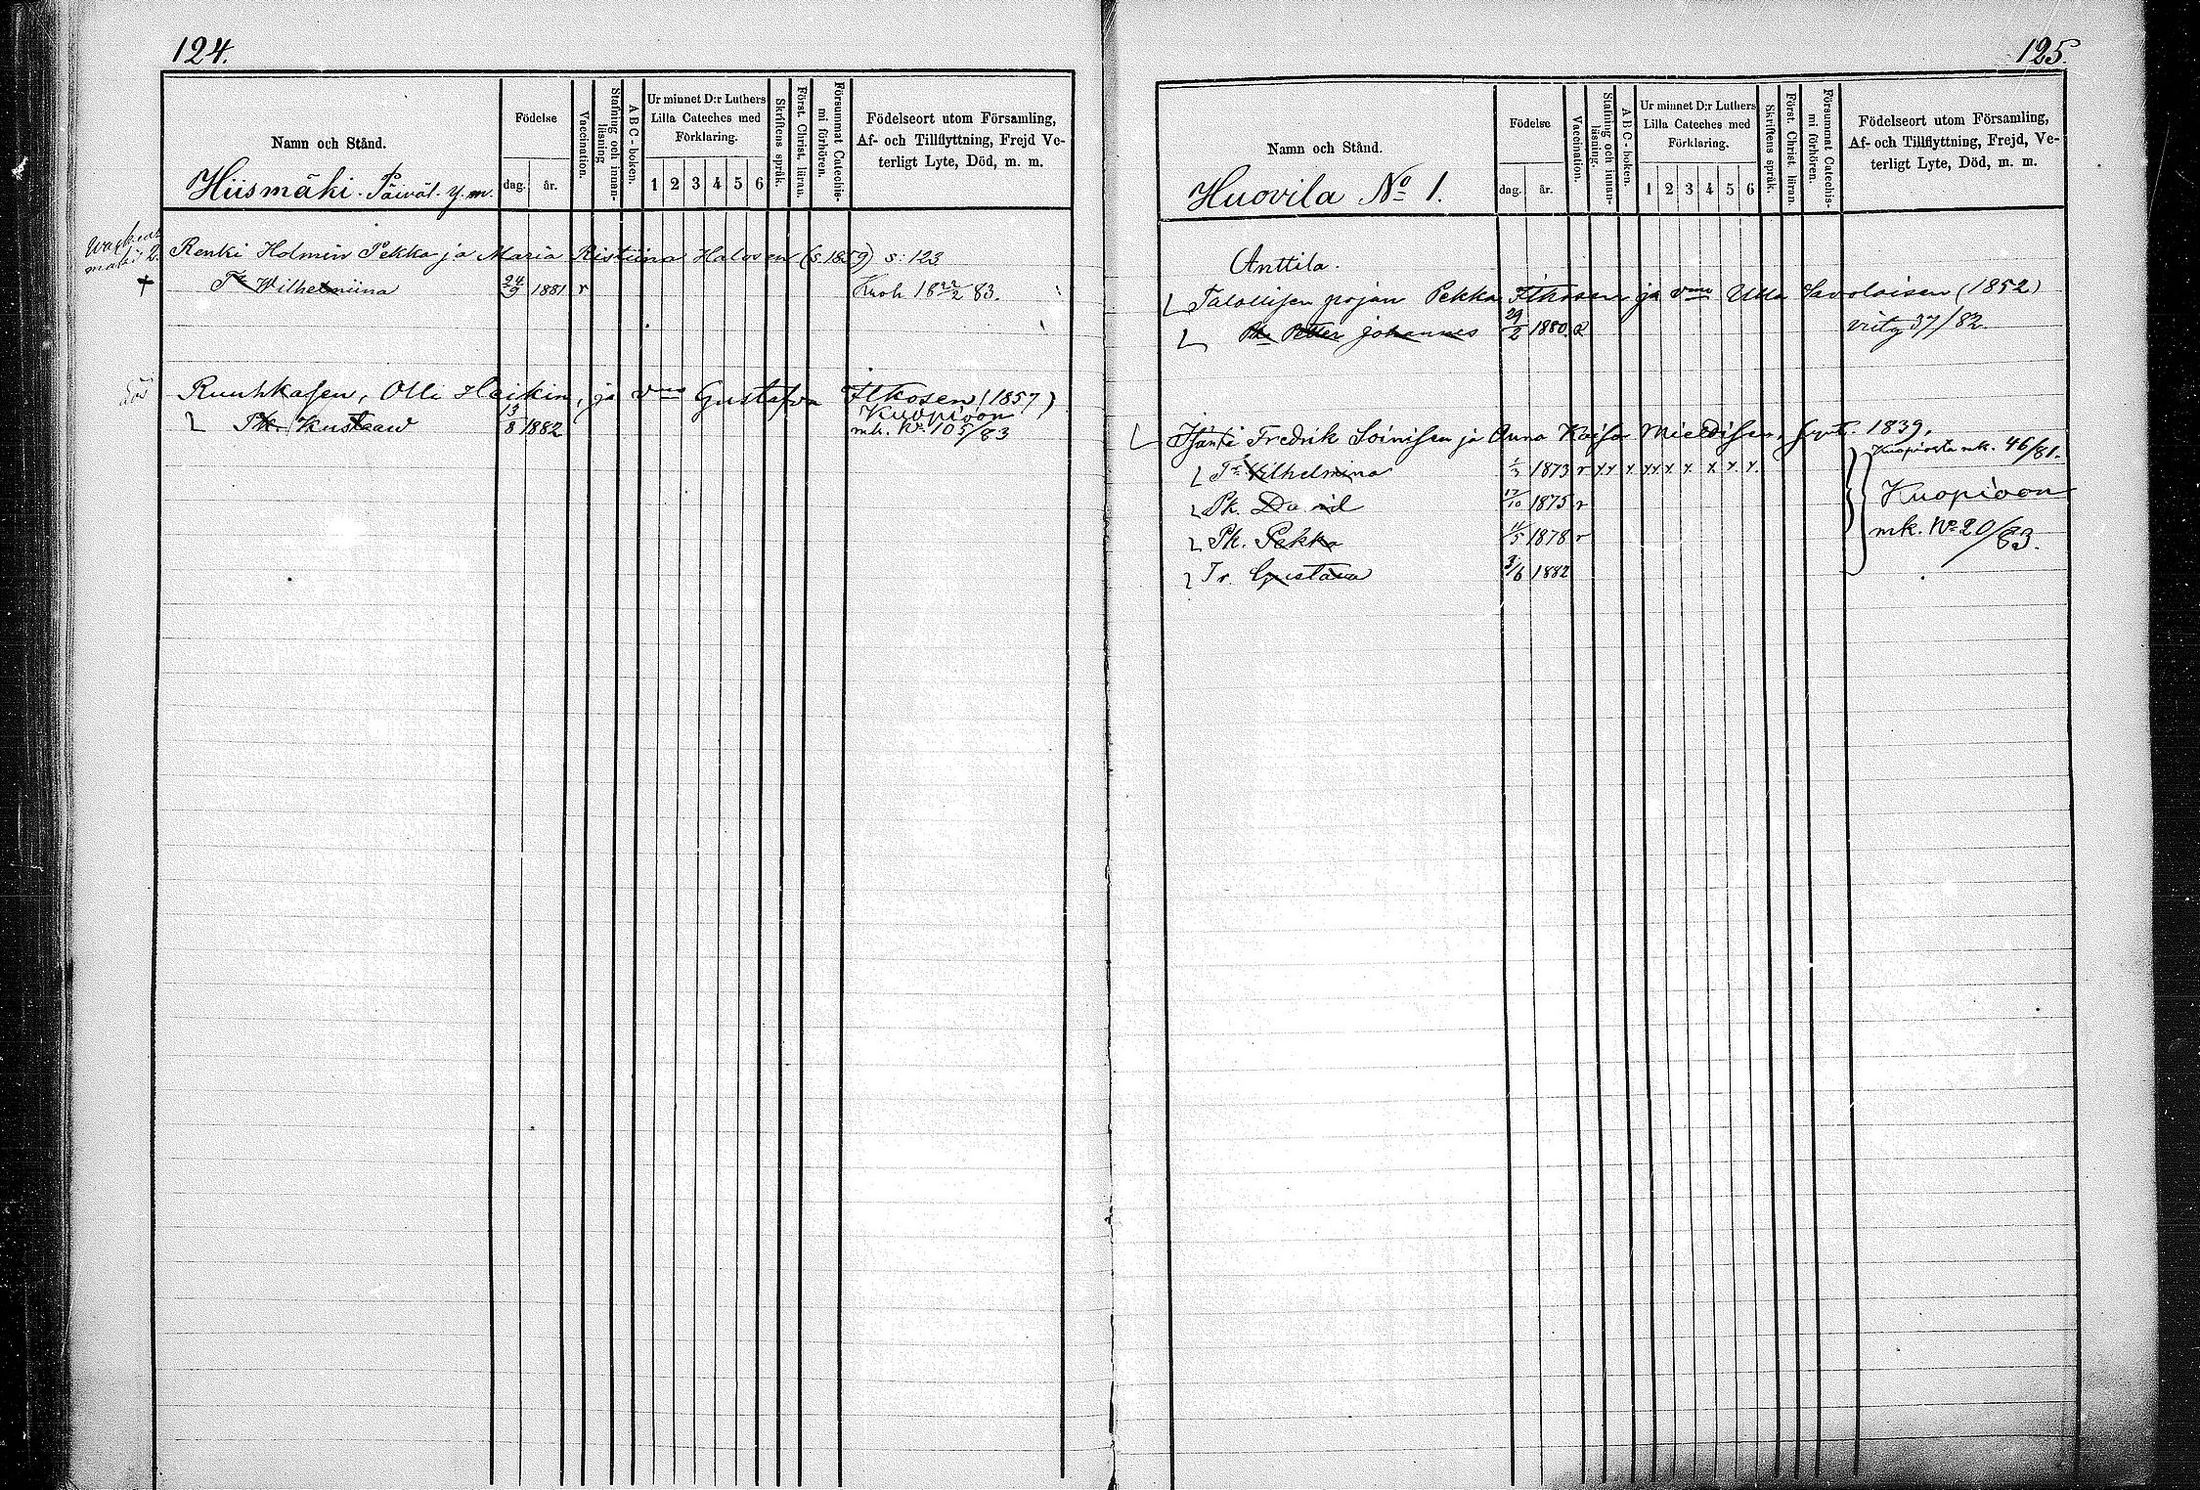 124.
Namn och Stånd.
Hiismäki. Päiväl. y. m.
Födelse
dag.
år.
Vaccination.
Stafning och innan-läsning
A B C - boken.
Ur minnet D:r Luthers
Lilla Cateches med
Förklaring.
1 2 3 4 5 6
Skriftens språk.
Först. Christ. läran.
Försummat Catechis-mi förhören.
Födelseort utom Församling,
Af- och Tillflyttning, Frejd Ve-
terligt Lyte, Död, m. m.
Renki Holmin Pekka ja Maria Ristiina Halosen (s. 1859) s: 123
Tr Wilhelmiina 24/9 1881 r Kuoli 18 22/2 83.
Ruuhkasen, Olli Heikin, ja vmo Gustafva Itkosen (1857)
Pk. Kustaaw 13/8 1882 Kuopioon
mk. No 105/83
125.
Namn och Stånd.
Huovila No 1.
Födelse
dag.
år.
Vaccination.
Stafning och innan-läsning.
A B C - boken.
Ur minnet D:r Luthers
Lilla Cateches med
Förklaring.
1 2 3 4 5 6
Skriftens språk.
Först. Christ. läran.
Försummat Catechis-mi förhören.
Födelseort utom Församling,
Af- och Tillflyttning, Frejd, Ve-
terligt Lyte, Död, m. m.
Anttila.
Talollisen pojan Pekka Itkosen ja vmo Ulla Savolaisen (1852)
Pk Petter Johannes 29/2 1880. R 37/82.
Fredrik Soinisen ja Anna Kaisa synt. 1839,
Kuopiosta mk. 46/81.
Tr Wilhelmina 1/3 1873 r x x x x x x x x x x
Pk. David 17/10 1875 r Kuopioon
Pk. Pekka 11/5 1878 r mk. No 20/83.
Tr. Gustava 3/6 1882